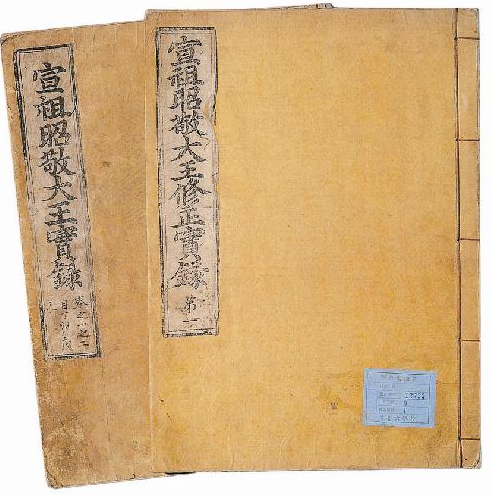 宣祖昭敬大王實錄
宣祖昭敬大王修正實錄
第一